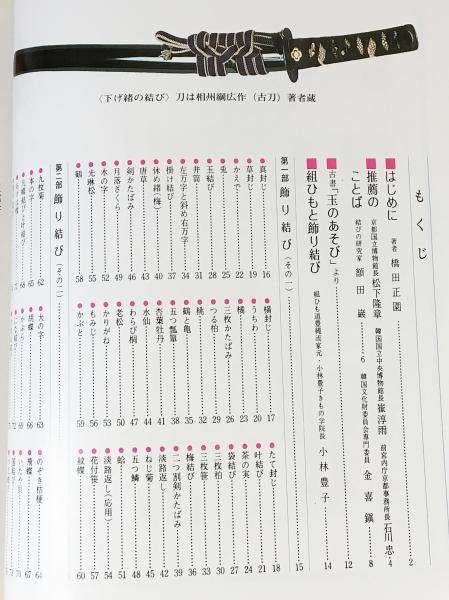 〈下げ緒の結び〉刀は相州綱広作（古刀）著者蔵
もくじ
はじめに 著者 橋田正園 2
推薦のことば 京都国立博物館長 松下隆章 韓国国立中央博物館長 崔淳雨 前宮内庁京都事務所長 石川忠 4
結びの研究家 額田巌 6 韓国文化財委員会専門委員 金喜鎭 8
古書「玉のあそび」より 12
組ひもと飾り結び 組ひも道豊縄流家元・小林豊子きもの学院長 小林豊子 14
第一部 飾り結び（その一） 15
真封じ 16 横封じ 17 たて封じ 18
草封じ 19 うちわ 20 叶結び 21
かえで 22 橘 23 茶の実 24
兎 25 三枚かたばみ 26 袋結び 27
玉結び 28 つる柏 29 三枚柏 30
井筒 31 桃 32 三枚笹 33
左万字と斜め右万字 34 鶴と亀 35 梅結び 36
掛け結び 37 五つ瓢箪 38 二つ割剣かたばみ 39
休め緒（梅） 40 杏葉牡丹 41 淡路結び 42
唐草 43 水仙 44 ねじ菊 45
剣かたばみ 46 わらび桐 47 五つ鱗 48
月落ざくら 49 老松 50 蛤 51
木の字 52 かりがね 53 淡路返し（応用） 54
光琳松 55 もみじ 56 花付笹 57
鶴 58 かぶと 59 紋蝶 60
第二部 飾り結び（その二）
九枚菊 62 大の字 63 のぞき桔梗 64
本の字 65 胡蝶 66 飛蝶 67
68 かぶら 69 いたや貝 70